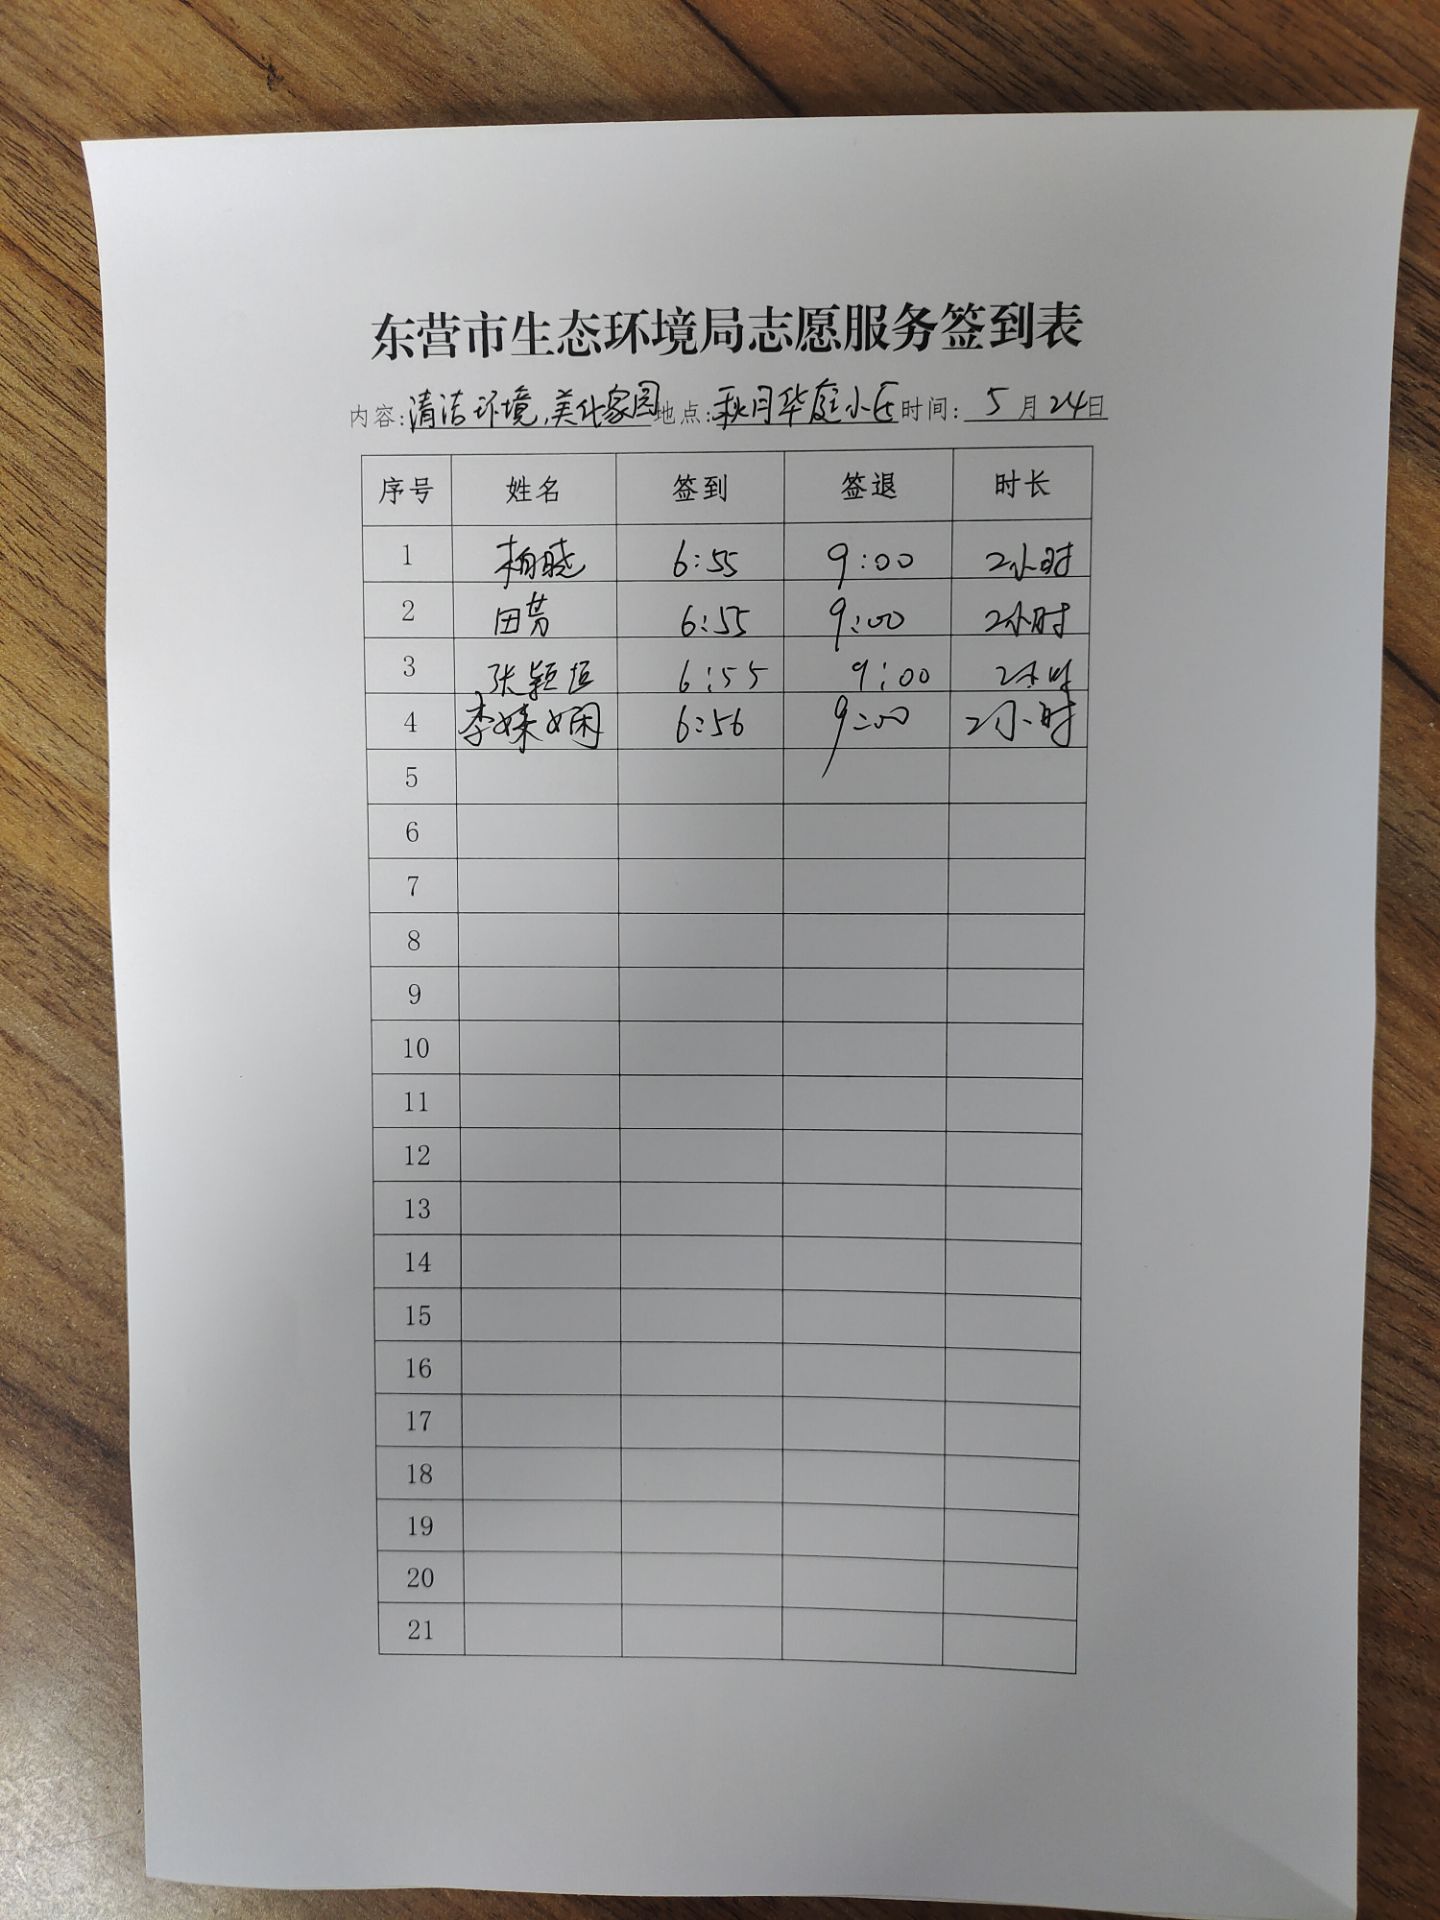 东营市生态环境局志愿服务签到表
内容:清洁环境,美化家园地点:秋月华庭小区时间: 5月24日
序号 姓名 签到 签退 时长
1 柏晓 6:55 9:00 2小时
2 田芳 6:55 9:00 2小时
3 张颖 6:55 9:00 2小时
4 李妹娴 6:56 9:00 2小时
5
6
7
8
9
10
11
12
13
14
15
16
17
18
19
20
21